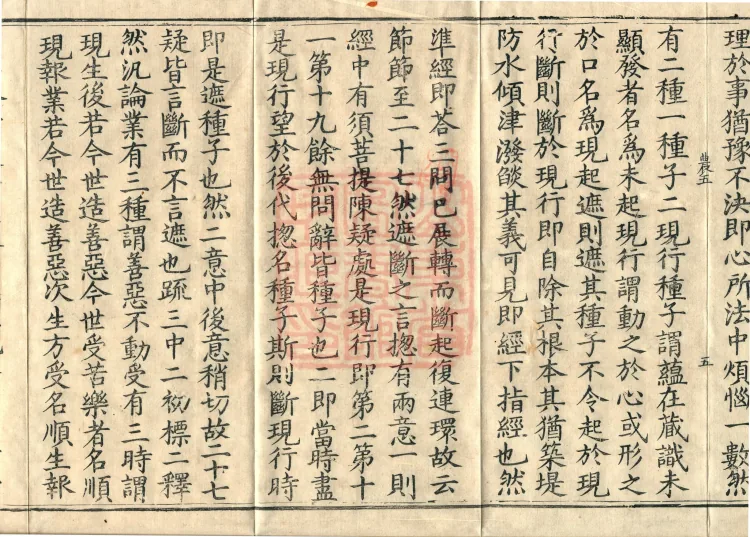 理於事猶豫不決即心所法中煩惱一數然
農五
五
有二種一種子二現行種子謂蘊在蔵識未
顯發者名爲未起現行謂動之於心或形之
於口名爲現起遮則遮其種子不令起於現
行斷則斷於現行即自除其根本其猶築堤
防水傾津潑燄其義可見即經下指經也然
準經即荅三問已展轉而斷起復連環故云
節節至二十七然遮斷之言揔有兩意一則
經中有須菩提陳疑處是現行即第二第十
一第十九餘無問辭皆種子也二即當時盡
是現行望於後代揔名種子斯則斷現行時
即是遮種子也然二意中後意稍切故二十七
疑皆言斷而不言遮也䟽三中二初標二釋
然汎論業有三種謂善惡不動受有三時謂
現生後若今世造善惡今世受苦樂者名順
現報業若今世造善惡次生方受名順生報